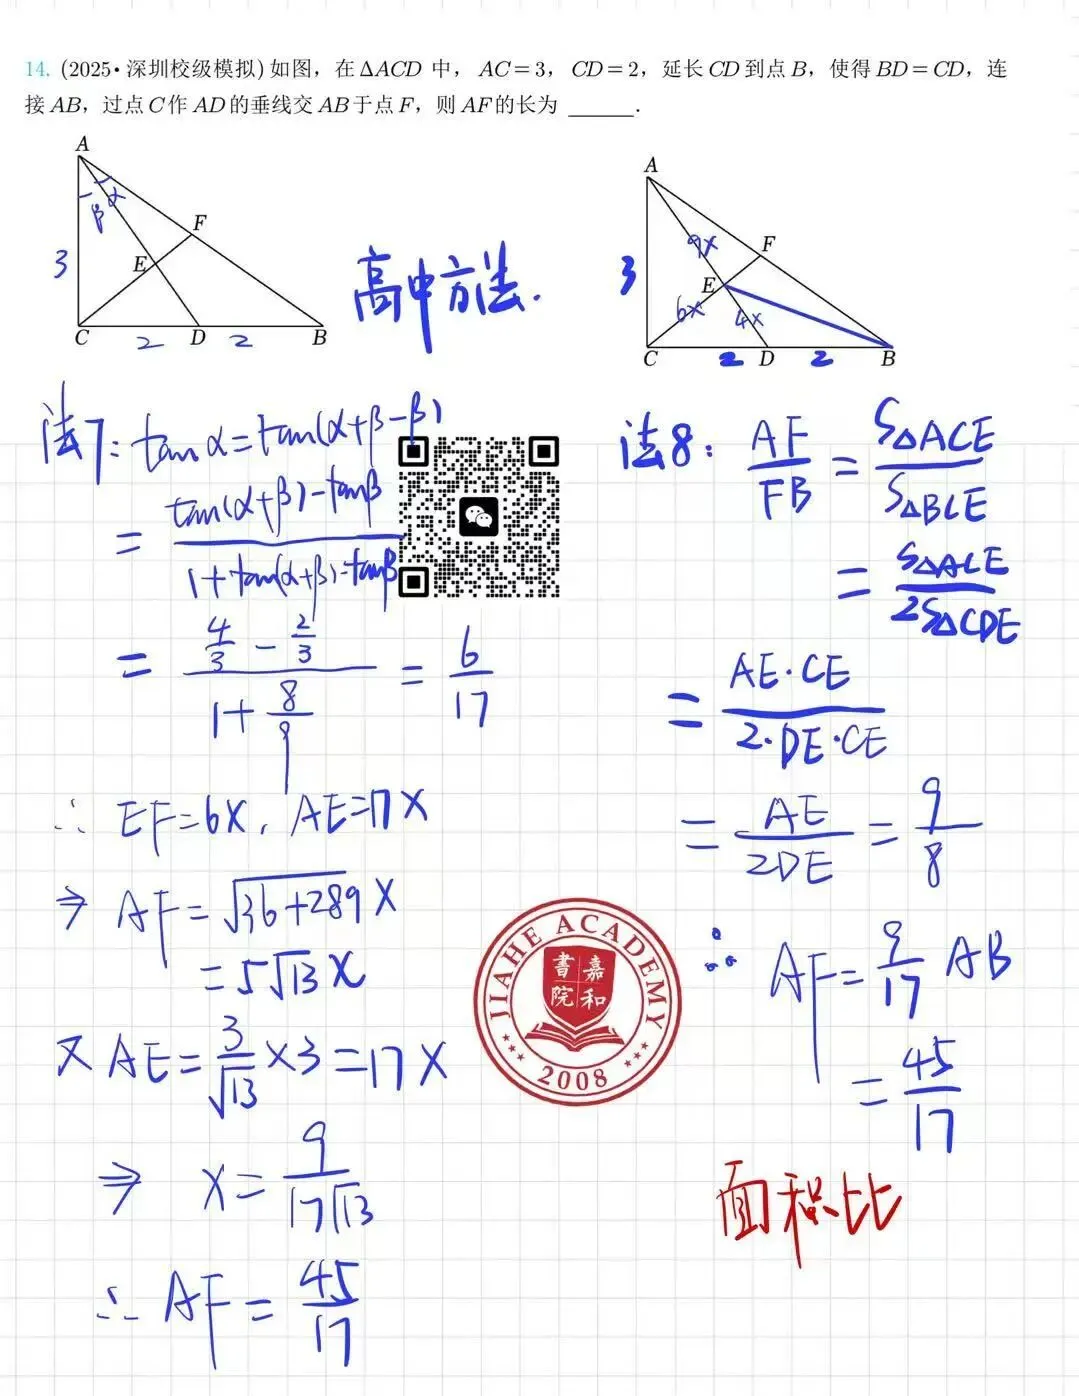 14. (2025•深圳校级模拟)如图，在ΔACD 中，AC=3，CD=2，延长CD到点B，使得BD=CD，连
接AB，过点C作AD的垂线交AB于点F，则AF的长为 ______．
A
α
β
F
3
E
C
2
D
2
B
高中方法.
A
9x
F
3
E
6x
4x
C
2
D
2
B
法7: tanα=tan(α+β-β)
= \frac{tan(α+β)-tanβ}{1+tan(α+β)·tanβ}
= \frac{\frac{4}{3}-\frac{2}{3}}{1+\frac{8}{9}} = \frac{6}{17}
∴ EF=6x, AE=17x
⇒ AF=√(36+289) x
=5√13 x
又AE=\frac{3}{√13}×3=17x
⇒ x=\frac{9}{17√13}
∴ AF=\frac{45}{17}
法8: \frac{AF}{FB} = \frac{S△ACE}{S△BCE}
= \frac{S△ACE}{2S△CDE}
= \frac{AE·CE}{2·DE·CE}
= \frac{AE}{2DE} = \frac{9}{8}
∴ AF=\frac{9}{17} AB
=\frac{45}{17}
面积比
JIAHE ACADEMY
書嘉
院和
2008